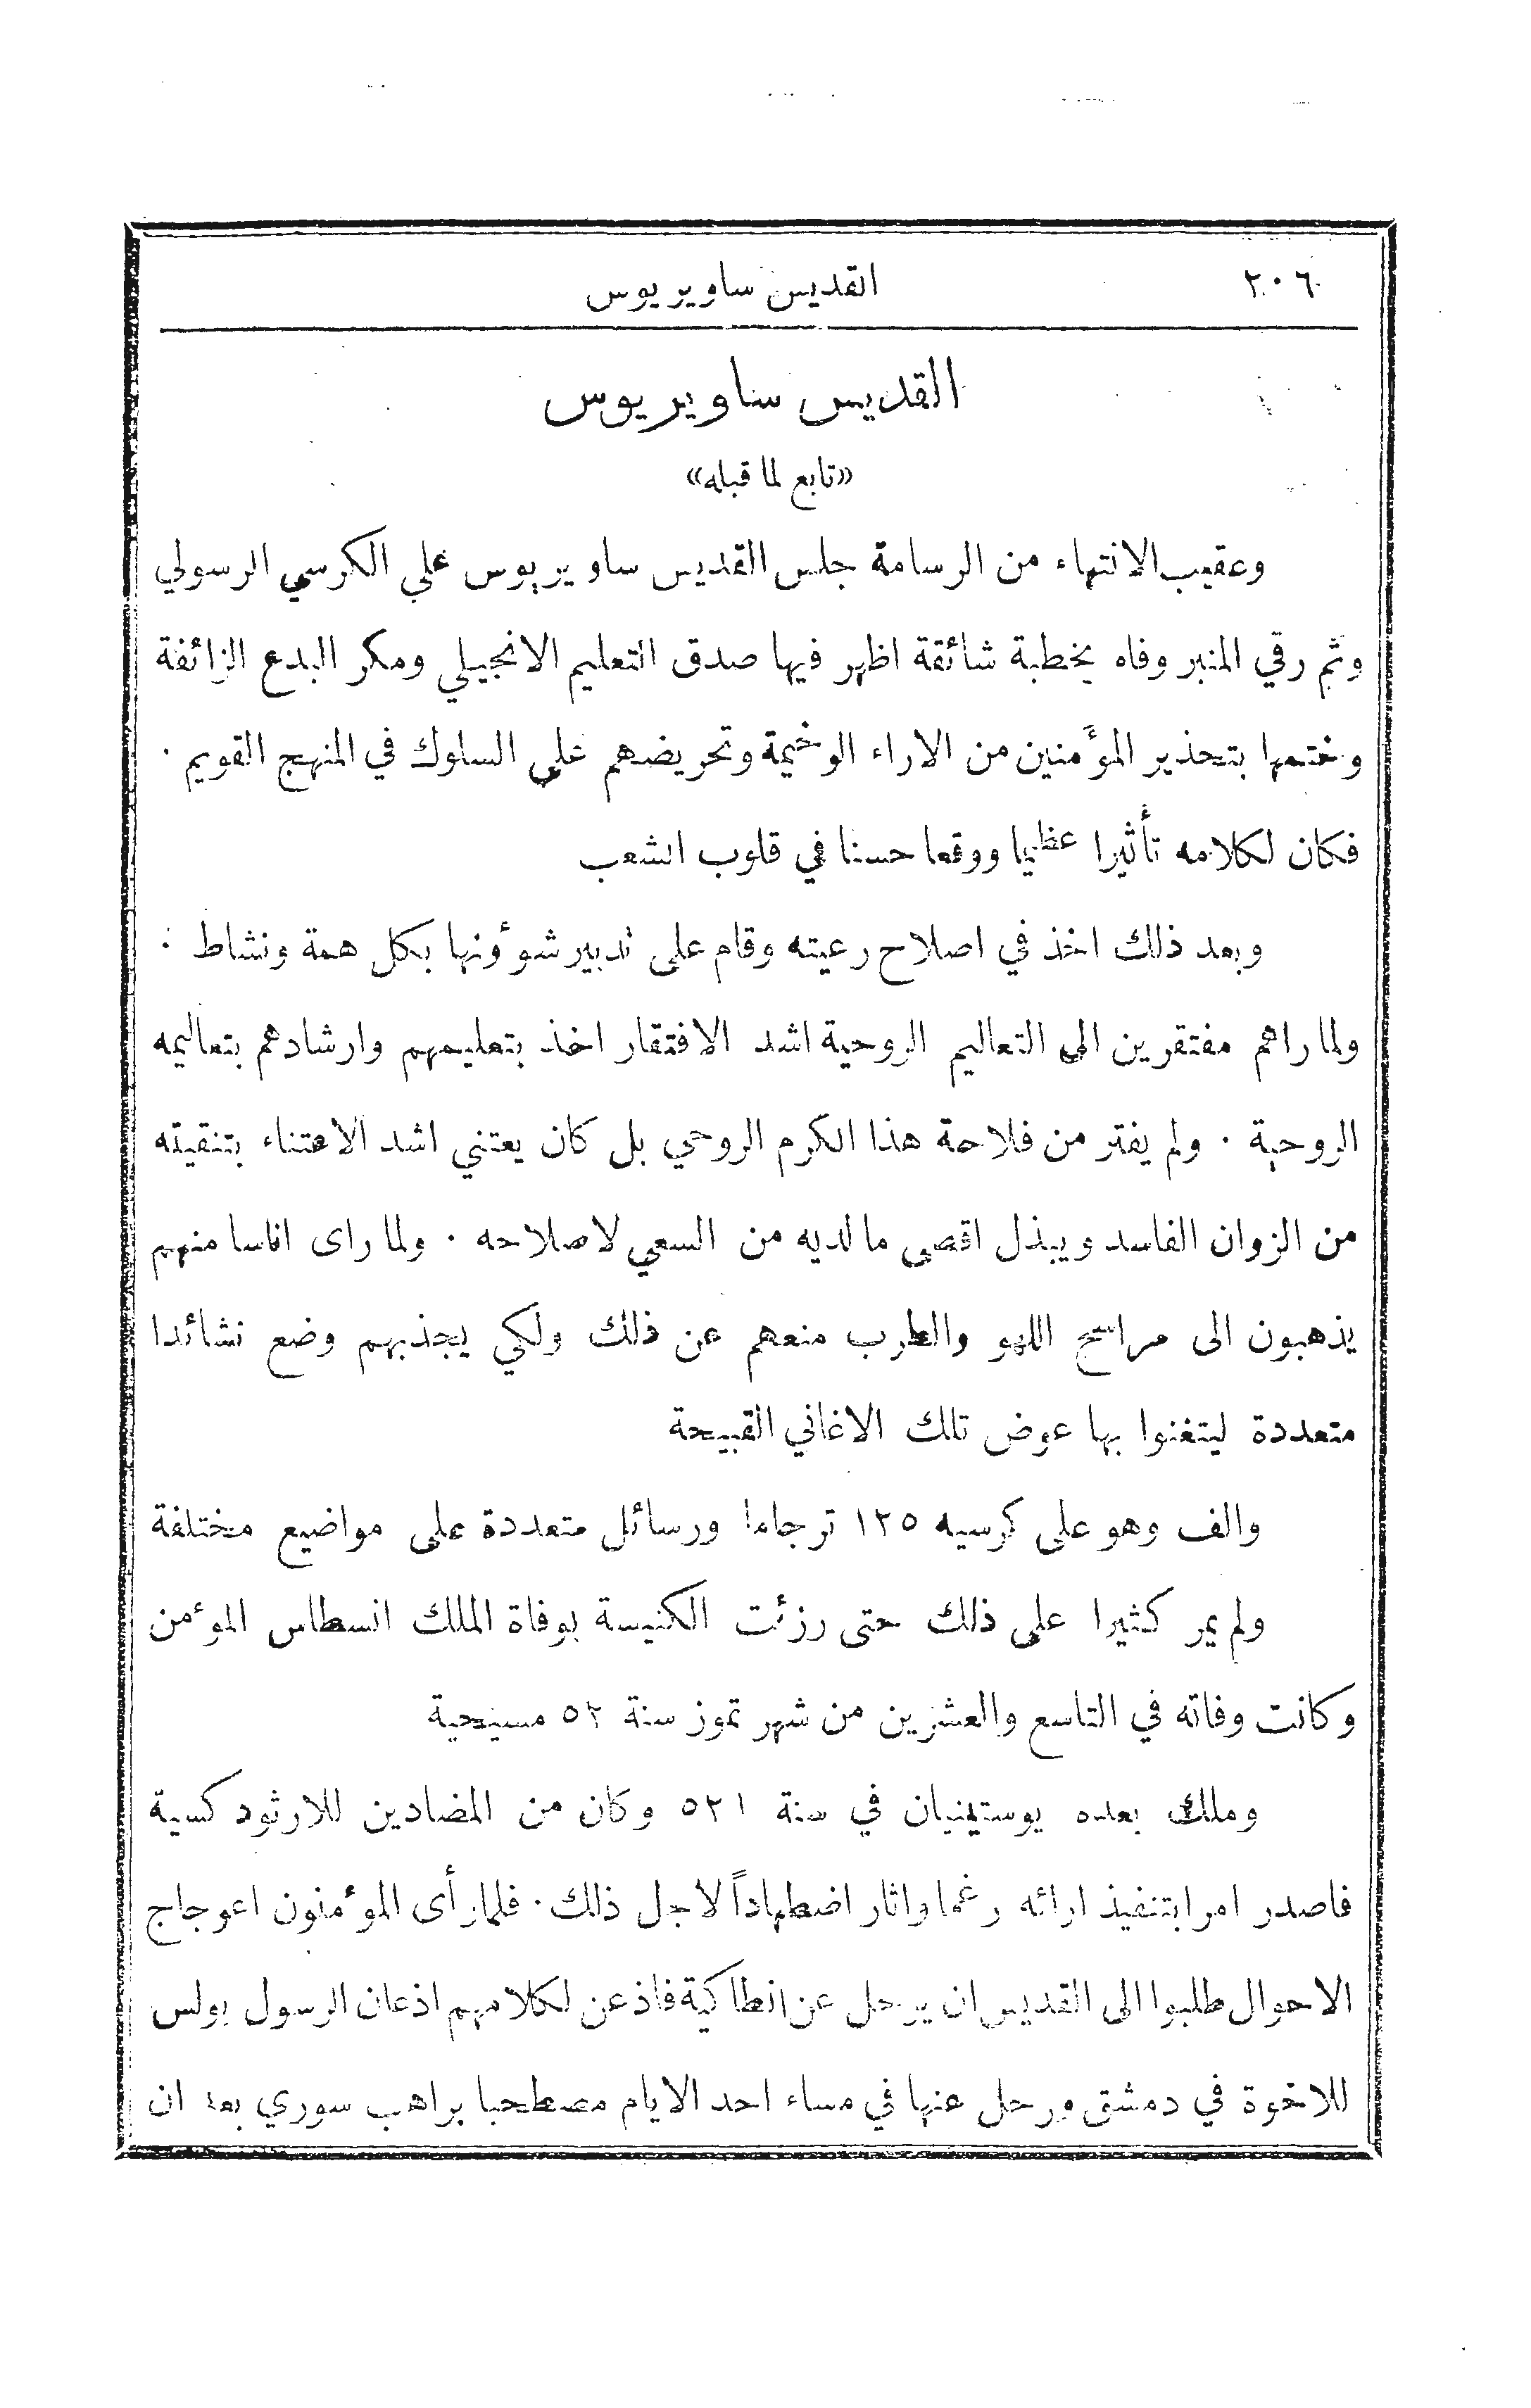 ٢٠٦
القديس ساويريوس
القديس ساويريوس
«تابع لما قبله»
وعقيب الانتهاء من الرسامة جلس القديس ساويريوس على الكرسي الرسولي
وثم رقي المنبر وفاه بخطبة شائقة اظهر فيها صدق التعليم الانجيلي ومكر البدع الزائفة
وختمها بتحذير المؤمنين من الاراء الوخيمة وتحريضهم على السلوك في المنهج القويم ٠
فكان لكلامه تأثيرا عظيما ووقعا حسنا في قلوب الشعب
وبعد ذلك اخذ في اصلاح رعيته وقام على تدبير شوؤنها بكل همة ونشاط ٠
ولما راهم مفتقرين الى التعاليم الروحية اشد الافتقار اخذ بتعليمهم وارشادهم بتعاليمه
الروحية ٠ ولم يفتر من فلاحة هذا الكرم الروحي بل كان يعتني اشد الاعتناء بتنقيته
من الزوان الفاسد ويبذل اقصى ما لديه من السعي لاصلاحه ٠ ولما راى اناسا منهم
يذهبون الى مراسح اللهو والطرب منعهم عن ذلك ولكي يجذبهم وضع نشائدا
متعددة ليتغنوا بها عوض تلك الاغاني القبيحة
والف وهو على كرسيه ١٢٥ ترجاما ورسائل متعددة على مواضيع مختلفة
ولم يمر كثيرا على ذلك حتى رزئت الكنيسة بوفاة الملك انسطاس الموءمن
وكانت وفاته في التاسع والعشرين من شهر تموز سنة ٥٢ مسيحية
وملك بعده يوستينيان في سنة ٥٢١ وكان من المضادين للارثودكسية
فاصدر امرا بتنفيذ ارائه رغما واثار اضطهاداً لاجل ذلك ٠ فلما رأى الموءمنون اعوجاج
الاحوال طلبوا الى القديس ان يرحل عن انطاكية فاذعن لكلامهم اذعان الرسول بولس
للاخوة في دمشق ورحل عنها في مساء احد الايام مصطحبا براهب سوري بعد ان